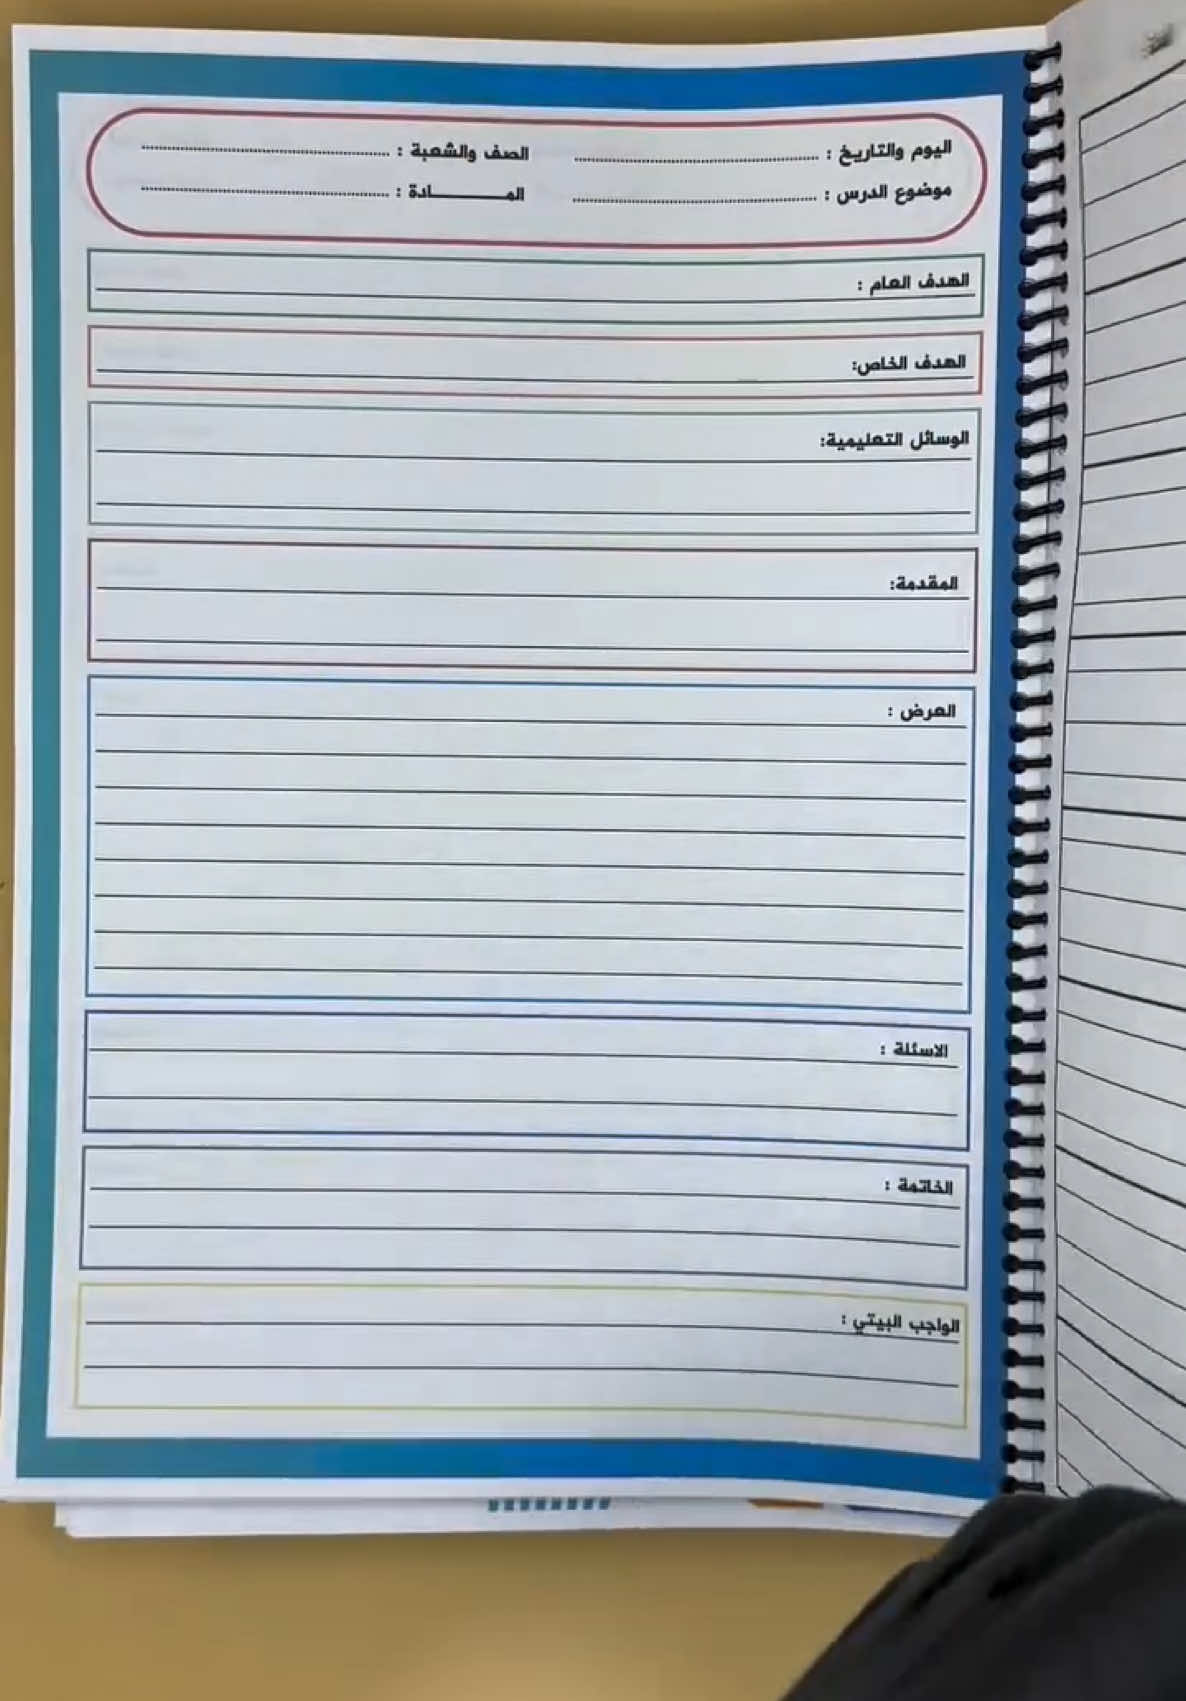 اليوم والتاريخ : ........................ الصف والشعبة : ........................
موضوع الدرس : ........................ المـــــــــادة : ........................
الهدف العام :
الهدف الخاص:
الوسائل التعليمية:
المقدمة:
العرض :
الاسئلة :
الخاتمة :
الواجب البيتي :